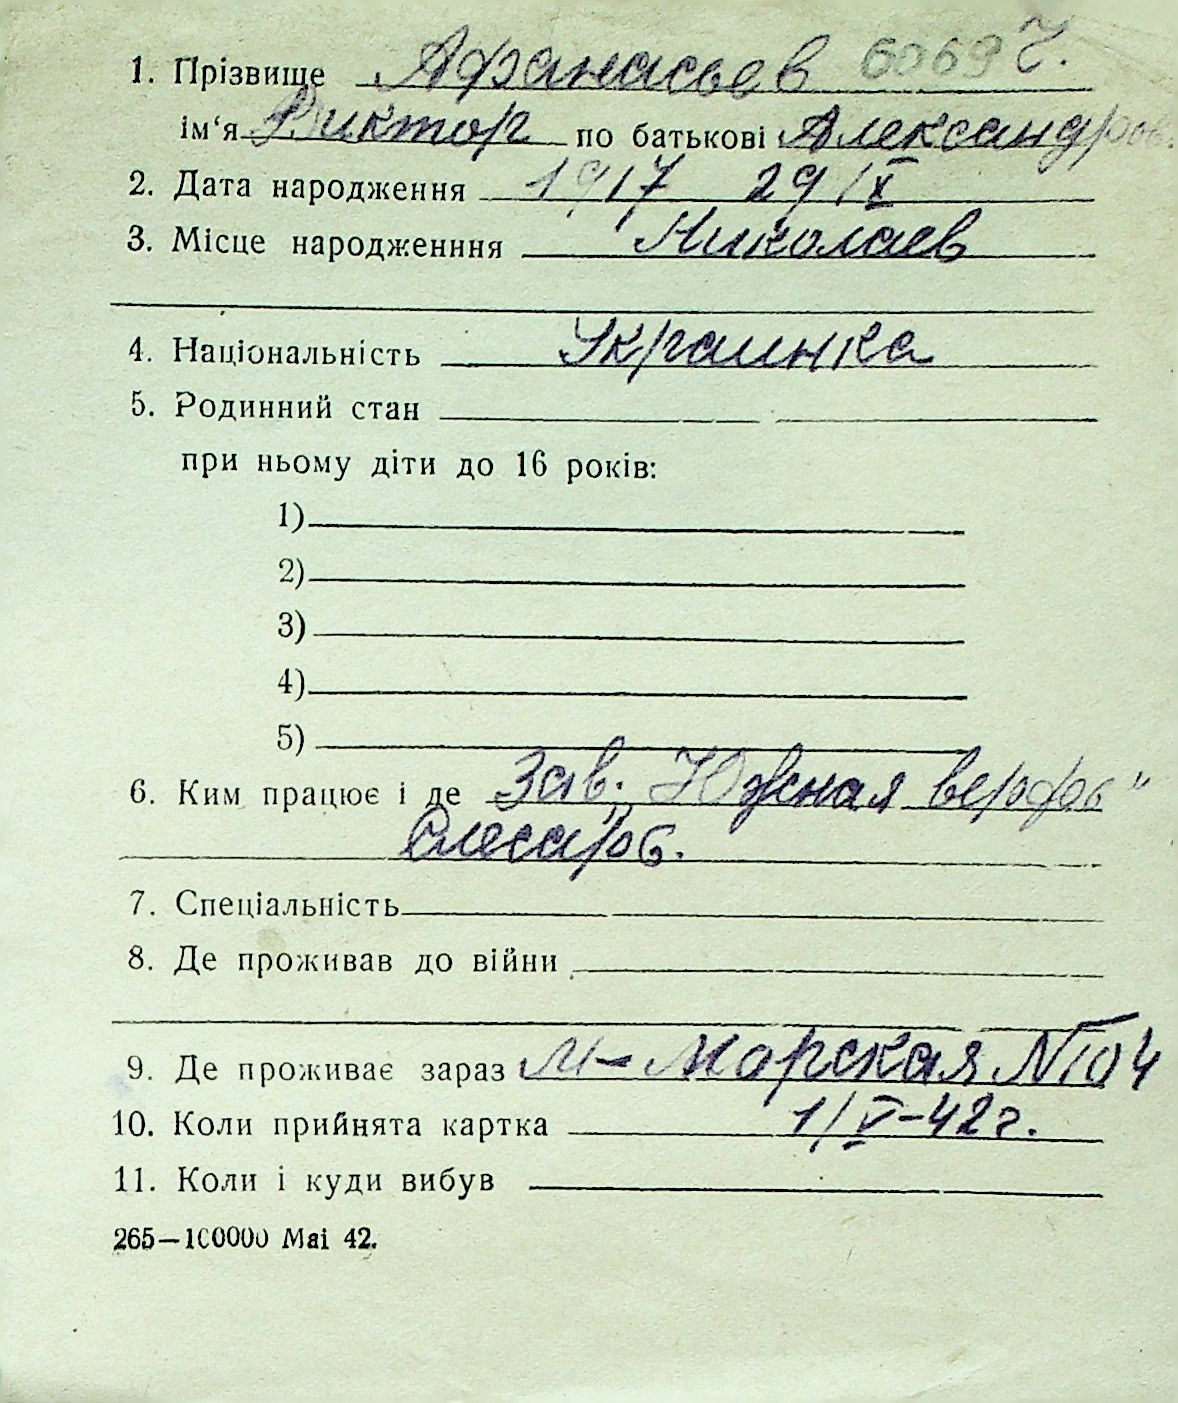 1. Прізвище Афанасьев 6069 Г.
ім‘я Виктор по батькові Александров.
2. Дата народження 1917 29/X
3. Місце народженння Николаев
4. Національність Украинка
5. Родинний стан
при ньому діти до 16 років:
1)
2)
3)
4)
5)
6. Ким працює і де Зав. „Южная верфь"
Слесарь.
7. Спеціальність
8. Де проживав до війни
9. Де проживає зараз М-Морская №104
10. Коли прийнята картка 1/V-42г.
11. Коли і куди вибув
265—100000 Mai 42.